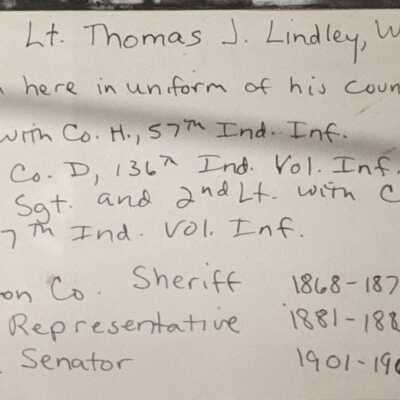 Lt. Thomas J. Lindley,
here in uniform of his
with Co. H., 57th Ind. Inf.
Co. D, 136th Ind. Vol. Inf.
Sgt. and 2nd Lt. with
7th Ind. Vol. Inf.
Co. Sheriff 1868-187
Representative 1881-188
Senator 1901-190